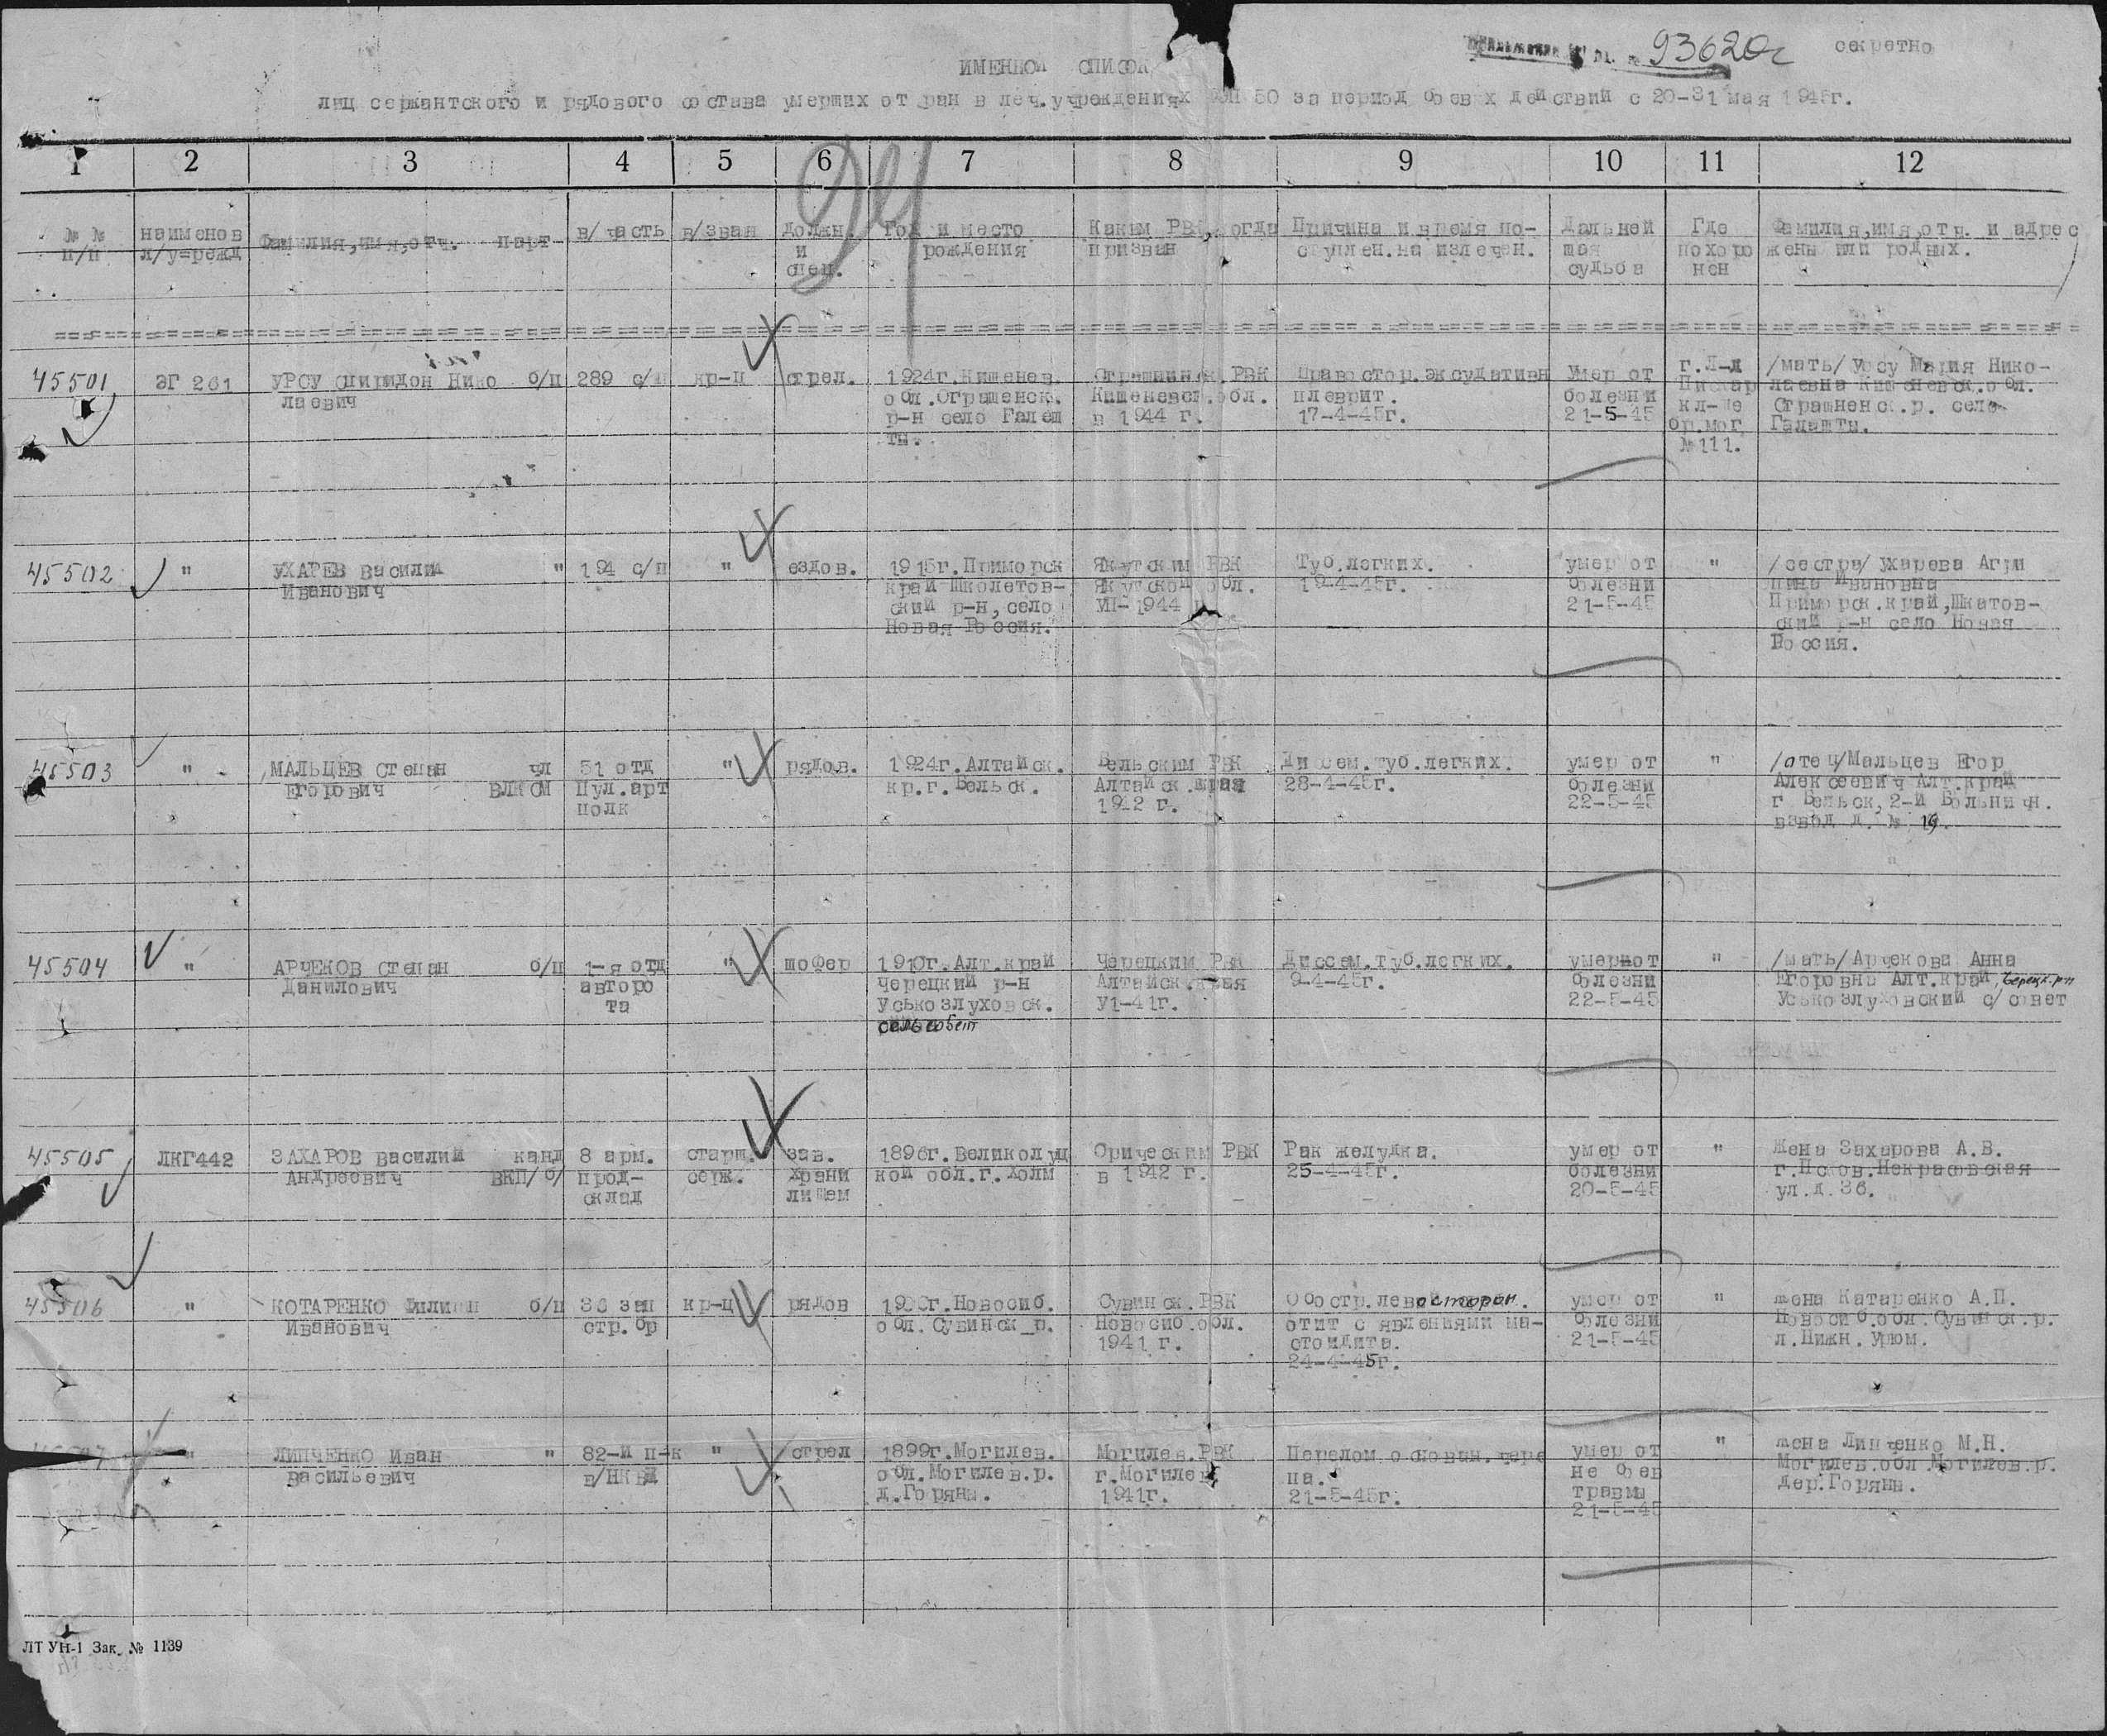 93620с секретно
ИМЕННОЙ СПИСОК
лиц сержантского и рядового состава умерших от ран в леч.учреждениях 50 за период боевых действий с 20-31 мая 1945г.
1 2 3 4 5 6 7 8 9 10 11 12
№ № наименов Фамилия,имя,отч. парт в/часть в/зван Должн Год и место Каким РВК,когда Причина и время по- Дальней Где Фамилия,имя,отч. и адрес
п/п л/у=режд и рождения призван ступлен.на излечен. шая похоро жены или родных.
спец. судьба нен
45501 ЭГ 261 УРСУ Спиридон Нико б/п 289 с/п кр-ц стрел. 1924г.Кишенев. РВК Правостор.эксудативн умер от г.Л-д /мать/ Урсу Мария Нико-
лаевич обл.Страшенск. Кишеневск.обл. плеврит. болезни Пискар лаевна Кишеневск.обл.
р-н село Галеш в 1944 г. 17-4-45г. 21-5-45 кл-ще Страшненск.р. село
ты. бр.мог. Галашты.
№111.
45502 " УХАРЕВ Василий " 194 с/п " ездов. 1915г.Приморск Якутским РВК Туб.легких. умер от " /сестра/ Ухарева Агри
Иванович край Школетов- Якутской обл. 19-4-45г. болезни пина Ивановна
ский р-н,село VII-1944 21-5-45 Приморск.край,Шкатов-
Новая Россия. ский р-н село Новая
Россия.
45503 " МАЛЬЦЕВ Степан чл 51 отд " рядов. 1924г.Алтайск. Бельским РВК Диссем.туб.легких. умер от " /отец/Мальцев Егор
Егорович ВЛКСМ Пул.арт кр.г.Бельск. Алтайск.края 28-4-45г. болезни Алексеевич Алт.край
полк 1942 г. 22-5-45 г Бельск,2-й Больничн.
взвод д.№ 19.
45504 " АРЧЕКОВ Степан б/п 1-я отд " шофер 1910г.Алт.край Черецким РВК Диссем.туб.легких. умер от " /мать/ Арчекова Анна
Данилович авторо Черецкий р-н Алтайск.края 9-4-45г. болезни Егоровна Алт.край,Черецк.р-н
та Уськозлуховск. У1-41г. 22-5-45 Уськозлуховский с/совет
сельсовет
45505 ЛКГ442 ЗАХАРОВ Василий канд 8 арм. старш. зав. 1896г.Великолуц Оричевским РВК Рак желудка. умер от " Жена Захарова А.В.
Андреевич ВКП/б/ прод- серж. храни кой обл.г.Холм в 1942 г. 25-4-45г. болезни г.Псков.Некрасовская
склад лищем 20-5-45 ул.д.36.
45506 " КОТАРЕНКО Филипп б/п 36 зап кр-ц рядов 1900г.Новосиб. Сувинск.РВК Обостр.левосторон. умер от " жена Катаренко А.П.
Иванович стр.бр обл.Сувинск р. Новосиб.обл. отит с явлениями ма- болезни Новосиб.обл.Сувинск.р.
1941 г. стоидита. 21-5-45 л.Нижн.Урюм.
24-4-45г.
" ЛИПЧЕНКО Иван " 82-й п-к " стрел 1899г.Могилев. Могилев.РВК Перелом основан.чере умер от " жена Липченко М.Н.
Васильевич в/НКВД обл.Могилев.р. г.Могилев па. не боев Могилев.обл.Могилев.р.
д.Горяны. 1941г. 21-5-45г. травмы дер.Горяны.
21-5-45
ЛТ УН-1 Зак. № 1139